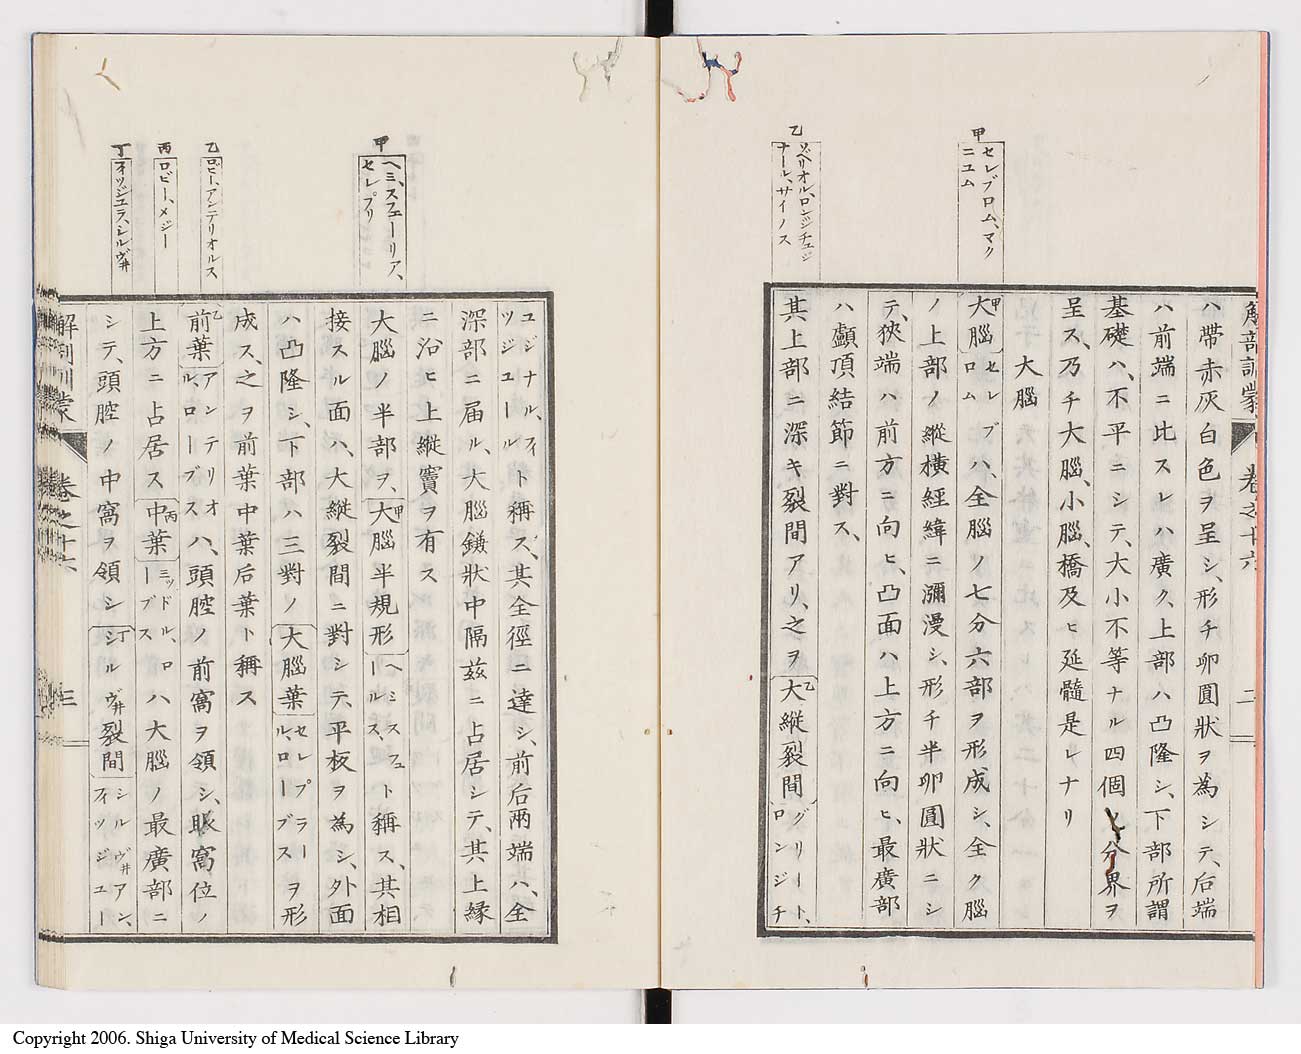 甲
セレブロム、マク
ニユム
乙
ソペリオル、ロンジチュジ
ナール、サイノス
解剖訓蒙
卷之十六
二
ハ帶赤灰白色ヲ呈シ、形チ卵圓狀ヲ為シテ、后端
ハ前端ニ比スレハ廣ク、上部ハ凸隆シ、下部所謂
基礎ハ、不平ニシテ、大小不等ナル四個ノ分界ヲ
呈ス、乃チ大腦、小腦、橋及ヒ延髓是レナリ
大腦
甲大腦セレブロムハ、全腦ノ七分六部ヲ形成シ、全ク腦
ノ上部ノ縱橫經緯ニ瀰漫シ、形チ半卵圓狀ニシ
テ、狹端ハ前方ニ向ヒ、凸面ハ上方ニ向ヒ、最廣部
ハ顱頂結節ニ對ス、
其上部ニ深キ裂間アリ、之ヲ乙大縱裂間グリート、ロンジチ
甲
ヘミ、スフェーリア、
セレブリ
乙
ロビー、アンテリオルス
丙
ロビー、メジー
丁
フイッシュラ、シルヴ井
ユジナル、フイッジユールト稱ス、其全徑ニ達シ、前后兩端ハ、全
深部ニ届ル、大腦鎌狀中隔茲ニ占居シテ、其上緣
ニ沿ヒ上縱竇ヲ有ス
大腦ノ半部ヲ、甲大腦半規形ヘミスフェールスト稱ス、其相
接スル面ハ、大縱裂間ニ對シテ、平板ヲ為シ、外面
ハ凸隆シ、下部ハ三對ノ大腦葉セレブラール、ローブスヲ形
成ス、之ヲ前葉中葉后葉ト稱ス
乙前葉アンテリオル、ローブスハ、頭腔ノ前窩ヲ領シ、眼窩位ノ
上方ニ占居ス丙中葉ミッドル、ローブスハ大腦ノ最廣部ニ
シテ、頭腔ノ中窩ヲ領シ丁シルヴ井裂間シルヴ井アン、フイッジユー
解剖訓蒙
卷之十六
三
Copyright 2006. Shiga University of Medical Science Library